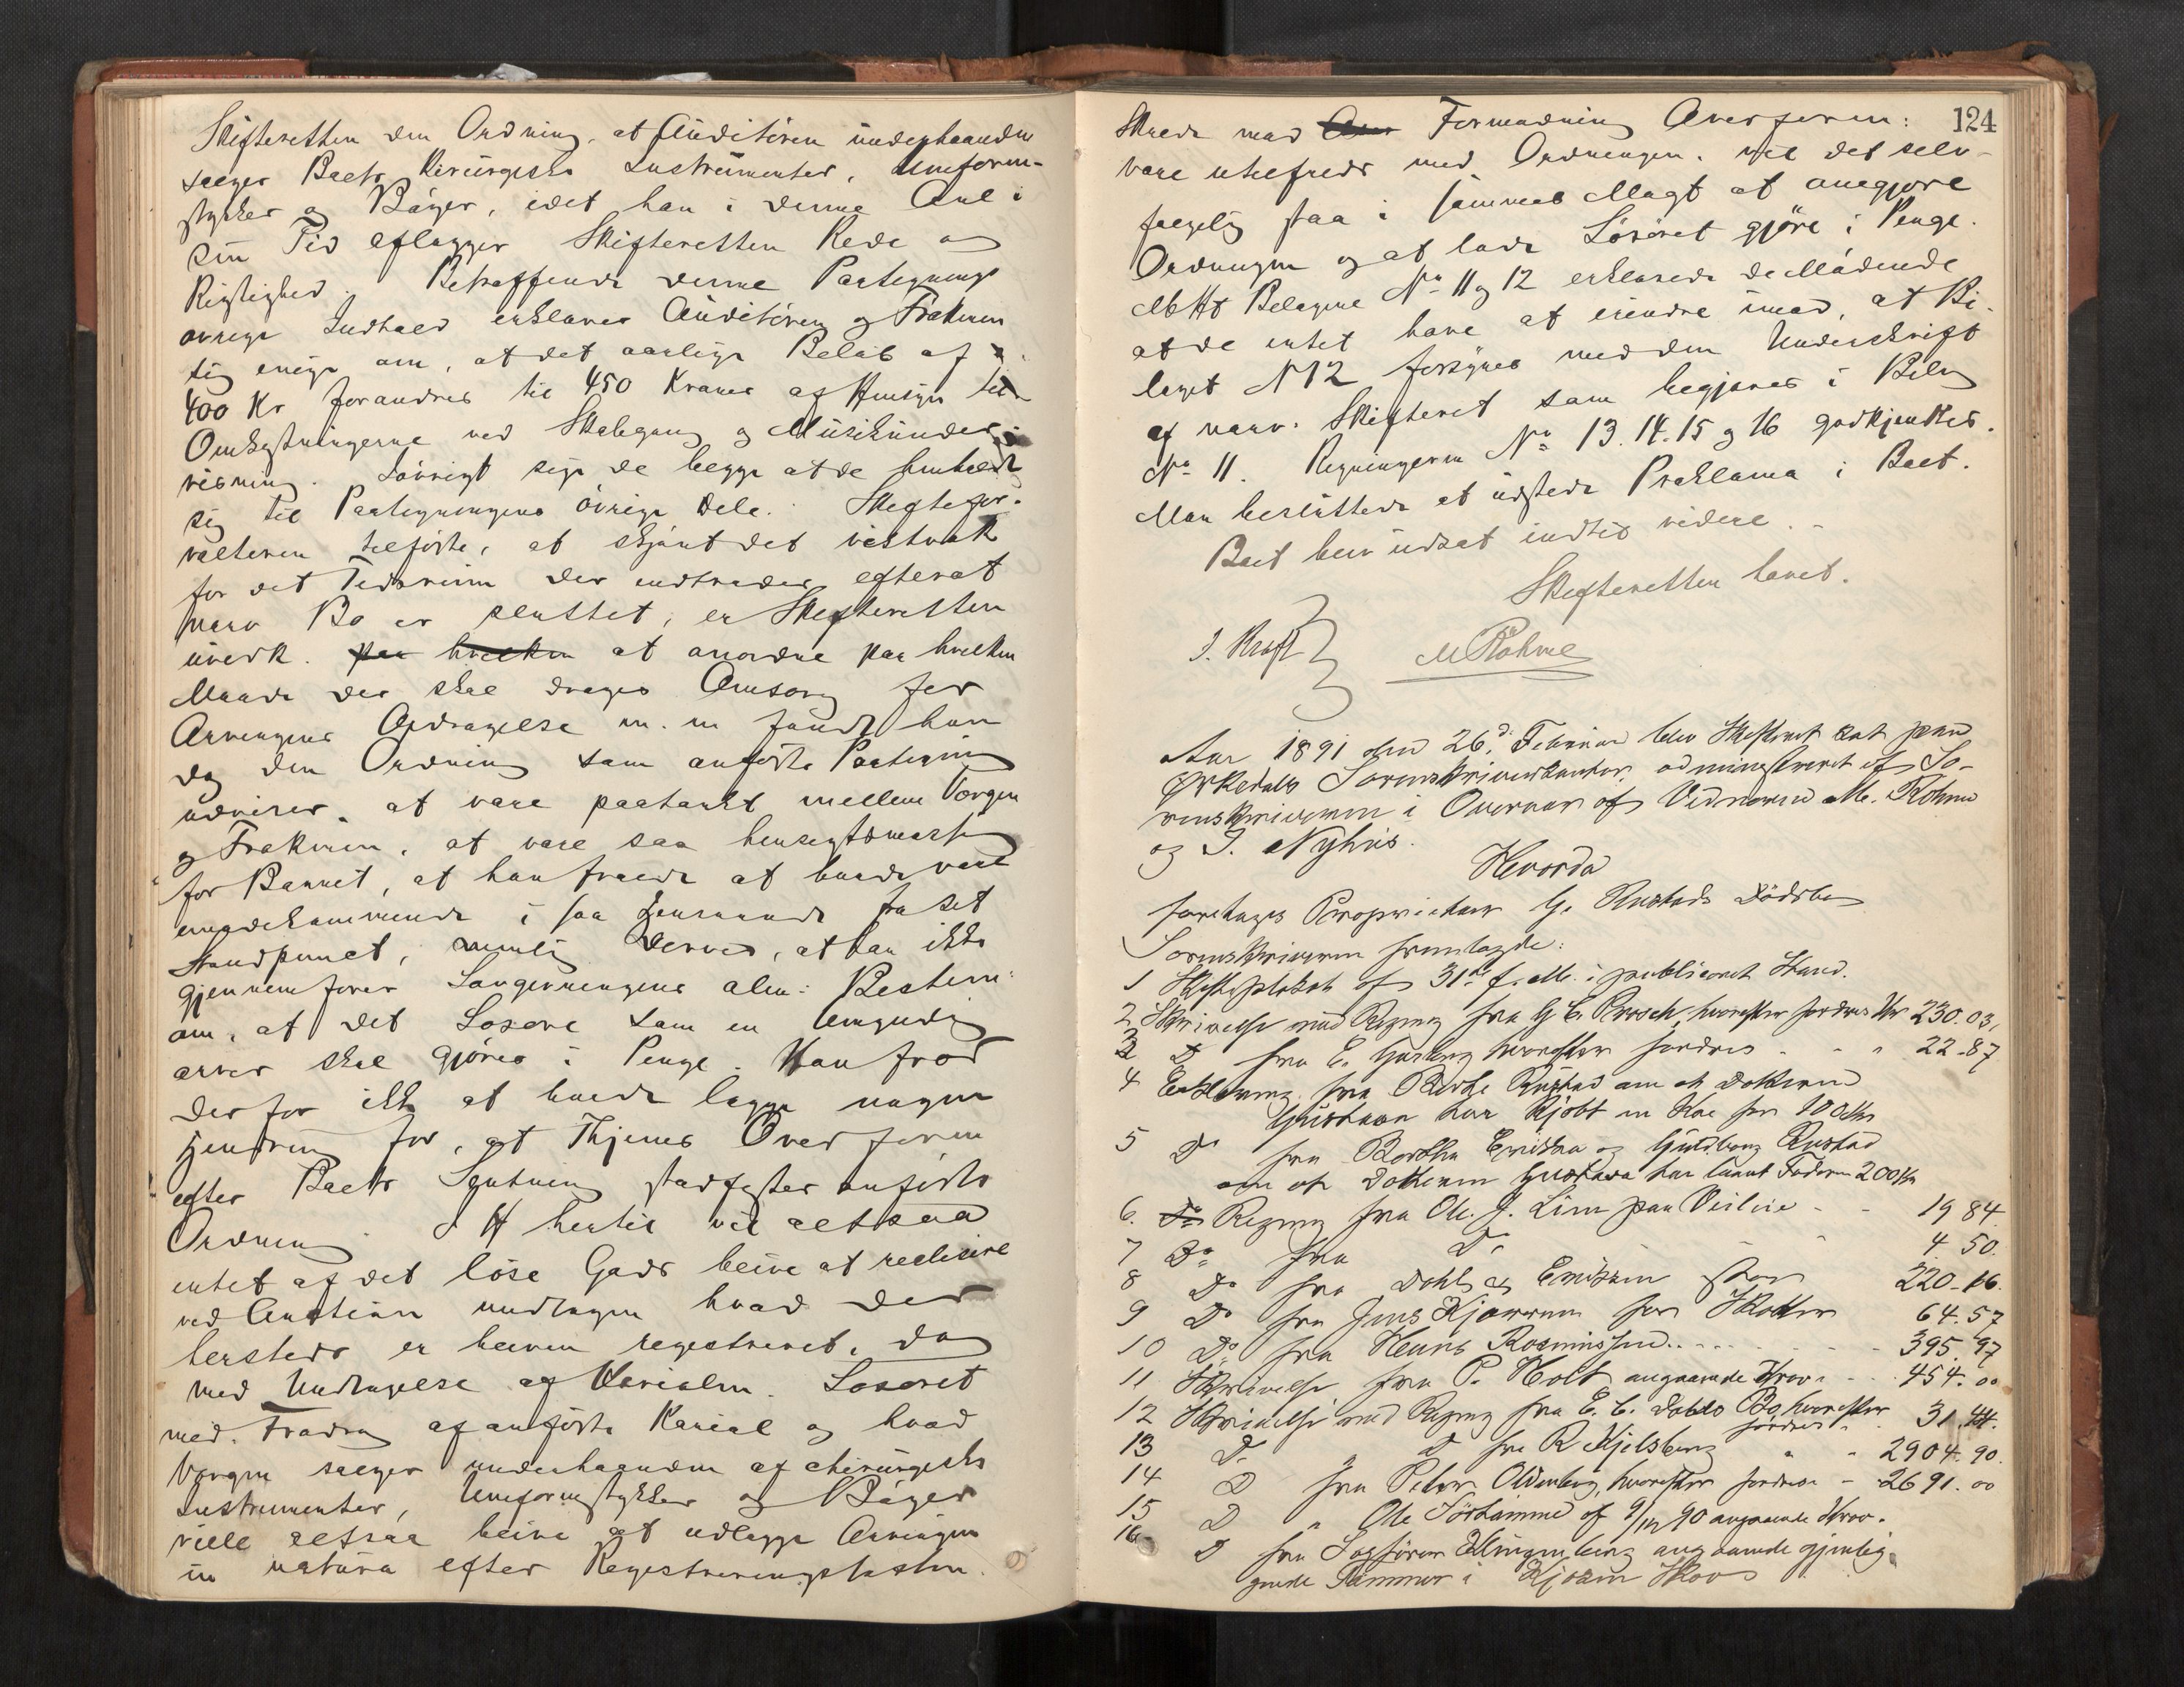 Skifteretten den Ordning, at Auditøren underhaanden
sælger Boets kirurgiske Instrumenter, Uniform-
stykker og Bøger, idet han i denne Anl i
sin Tid aflægger Skifteretten Rede og
Rigtighed. Betræffende denne Paategnings
øvrige Indhold erklærer Auditøren og Frøkenen
sig enige om, at det aarlige Beløb af
400 Kr forandres til 450 Kroner af Hensyn til
Omkostningerne ved Skolegang og Musikunder-
visning. Iøvrigt sige de begge at de henholdt
sig til Paategningens øvrige Dele. Skiftefor-
valteren tilføite, at skjønt det vistnok
for det Tidsrum der indtræder efterat
nærv Bo er sluttet, er Skifteretten
uvedk. paa hvilken at anordne paa hvilken
Maade der skal drages Omsorg for
Arvingens Opdragelse m. m fandt han
dog den Ordning som anførte Paategning
udviser, at være paatænkt mellem Vergen
og Frøkenen, at være saa hensigtsmæssig
for Barnet, at han troede at burde være
imødekommende i saa Henseende fra sit
Standpunct, nemlig derved, at han ikke
gjennemfører Lovgivningens alm: Bestem:
om, at det Løsøre som en Umyndig
arver skal gjøres i Penge. Han trod
derfor ikke at burde lægge nogen
Hindring for, at Thjemes Overformynderi
efter Boets Slutning stadfæster anførte
Ordning. I H hertil vil altsaa
intet af det løse Gods blive at realisere
ved Auction undtagen hvad der
hersteds er bleven registreret, dog
med Undtagelse af Kariolen. Løsøret
med Fradrag af anførte Kariol og hvad
Vergen sælger underhaanden af chirurgiske
Instrumenter, Uniformstykker og Bøger
ville altsaa blive at udlægge Arvingen
in natura efter Registreringstaxten.
124
Skulde mod Formodning Overform:
være utilfreds med Ordningen, vil det selv-
følgelig staa i sammes Magt at omgjøre
Ordningen og at lade Løsøret gjøre i Penge.
M H t Bilagene No 11 og 12 erklærede de Mødende
at de intet have at erindre imod, at Bi-
laget N 12 forsynes med den Underskrift
af nærv. Skifteret som begjæres i Bilag
No 11. Regningerne No 13. 14. 15 og 16 godkjendtes.
Man besluttede at udstede Proklama i Boet.
Boet blev udsat indtil videre. -
Skifteretten hævet.
J. Kraft M Röhme
Aar 1891 den 26de Februar blev Skifteret sat paa
Orkedals Sorenskriverkontor, administreret af So-
renskriveren i Overvær af Vidnerne M. Röhme
og J. Nyhus.
Hvorda
foretages Proprietær G. Rustads Dødsbo
Sorenskriveren fremlagde:
1 Skifteplakat af 31te f. M. i publiceret Stand.
2 Skrivelse med Regning fra G C Brosch, hvorefter fordres Kr 230.03,
3 Do fra E. Garberg hvorefter fordres - - " 22-87
4 Erklæring fra Rustad om at Datteren
Gustava har kjøbt en Ko for 100 Kr
5 Do fra Berthe Erikka og Guldborg Rustad
om at Datteren Gustava har laant Faderen 200 Kr
6. Do Regning fra Ol. J. Lian paa - - 19 84.
7 Do fra Do " 4 50.
8 Do fra Dahl og Eriksen stor 220-16.
9 Do fra Jens Kjørrem for 64.57
10 Do fra Hans Rasmussen . . - - - - 395.97
11 Skrivelse fra P. Holt angaaende Krav - - 454.00
12 Skrivelse med Regning fra E. C. Dahls Bo, hvorefter
fordres " 31.44.
13 Do " D fra R Kjelsberg " " 2904.90.
14 D fra Peter Oldenborg, hvorefter fordres - 2691.00
15 D " Ole Sørhamme af 9/12 90 angaaende Krav.
16 D fra Sagfører Klingenberg angaaende gjenlig-
gende Tømmer i Skov